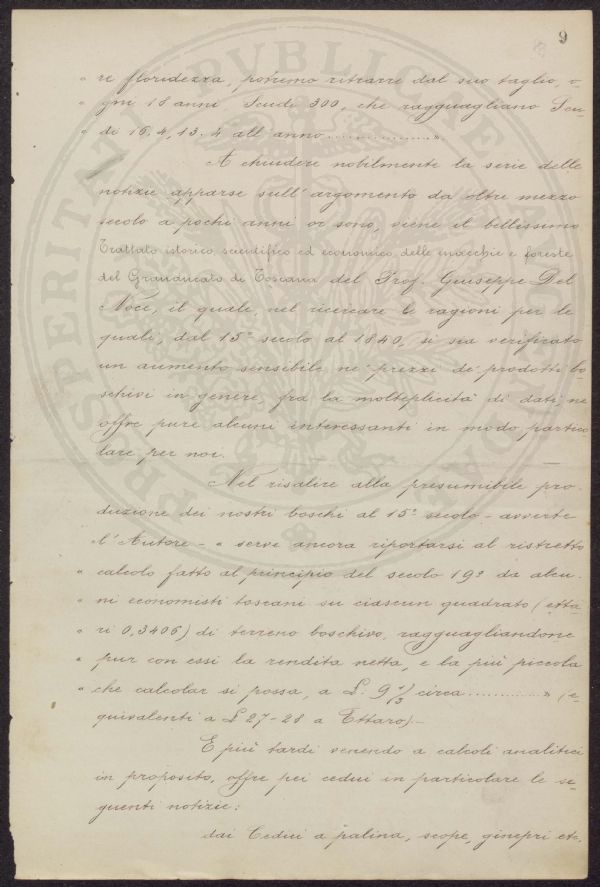 9
" re floridezza, potremo ritrarre dal suo taglio, o-
" gni 18 anni Scudi 300, che ragguagliano Scu-
" di 16.4.13.4 all'anno ................".
A chiudere nobilmente la serie delle
notizie apparse sull'argomento da oltre mezzo
secolo a pochi anni or sono, viene il bellissimo
Trattato istorico scientifico ed economico delle macchie e foreste
del Granducato di Toscana del Prof. Giuseppe Del
Noce, il quale, nel ricercare le ragioni per le
quali, dal 15° secolo al 1840, si sia verificato
un aumento sensibile ne' prezzi de' prodotti bo-
schivi in genere, fra la molteplicità di dati, ne
offre pure alcuni interessanti in modo partico-
lare per noi.
Nel risalire alla presumibile pro-
duzione dei nostri boschi al 15° secolo - avverte
l'Autore - " serve ancora riportarsi al ristretto
" calcolo fatto al principio del secolo 19° da alcu-
" ni economisti toscani su ciascun quadrato (etta-
" ri 0,3406) di terreno boschivo, ragguagliandone
" pur con essi la rendita netta, e la più piccola
" che calcolar si possa, a £. 9 1/3 circa ............." (e-
quivalenti a £ 27-28 a Ettaro).-
E più tardi venendo a calcoli analitici
in proposito, offre pei cedui in particolare le se-
guenti notizie:
dai Cedui a palina, scope, ginepri etc.
PROSPERITATI PVBLICAE